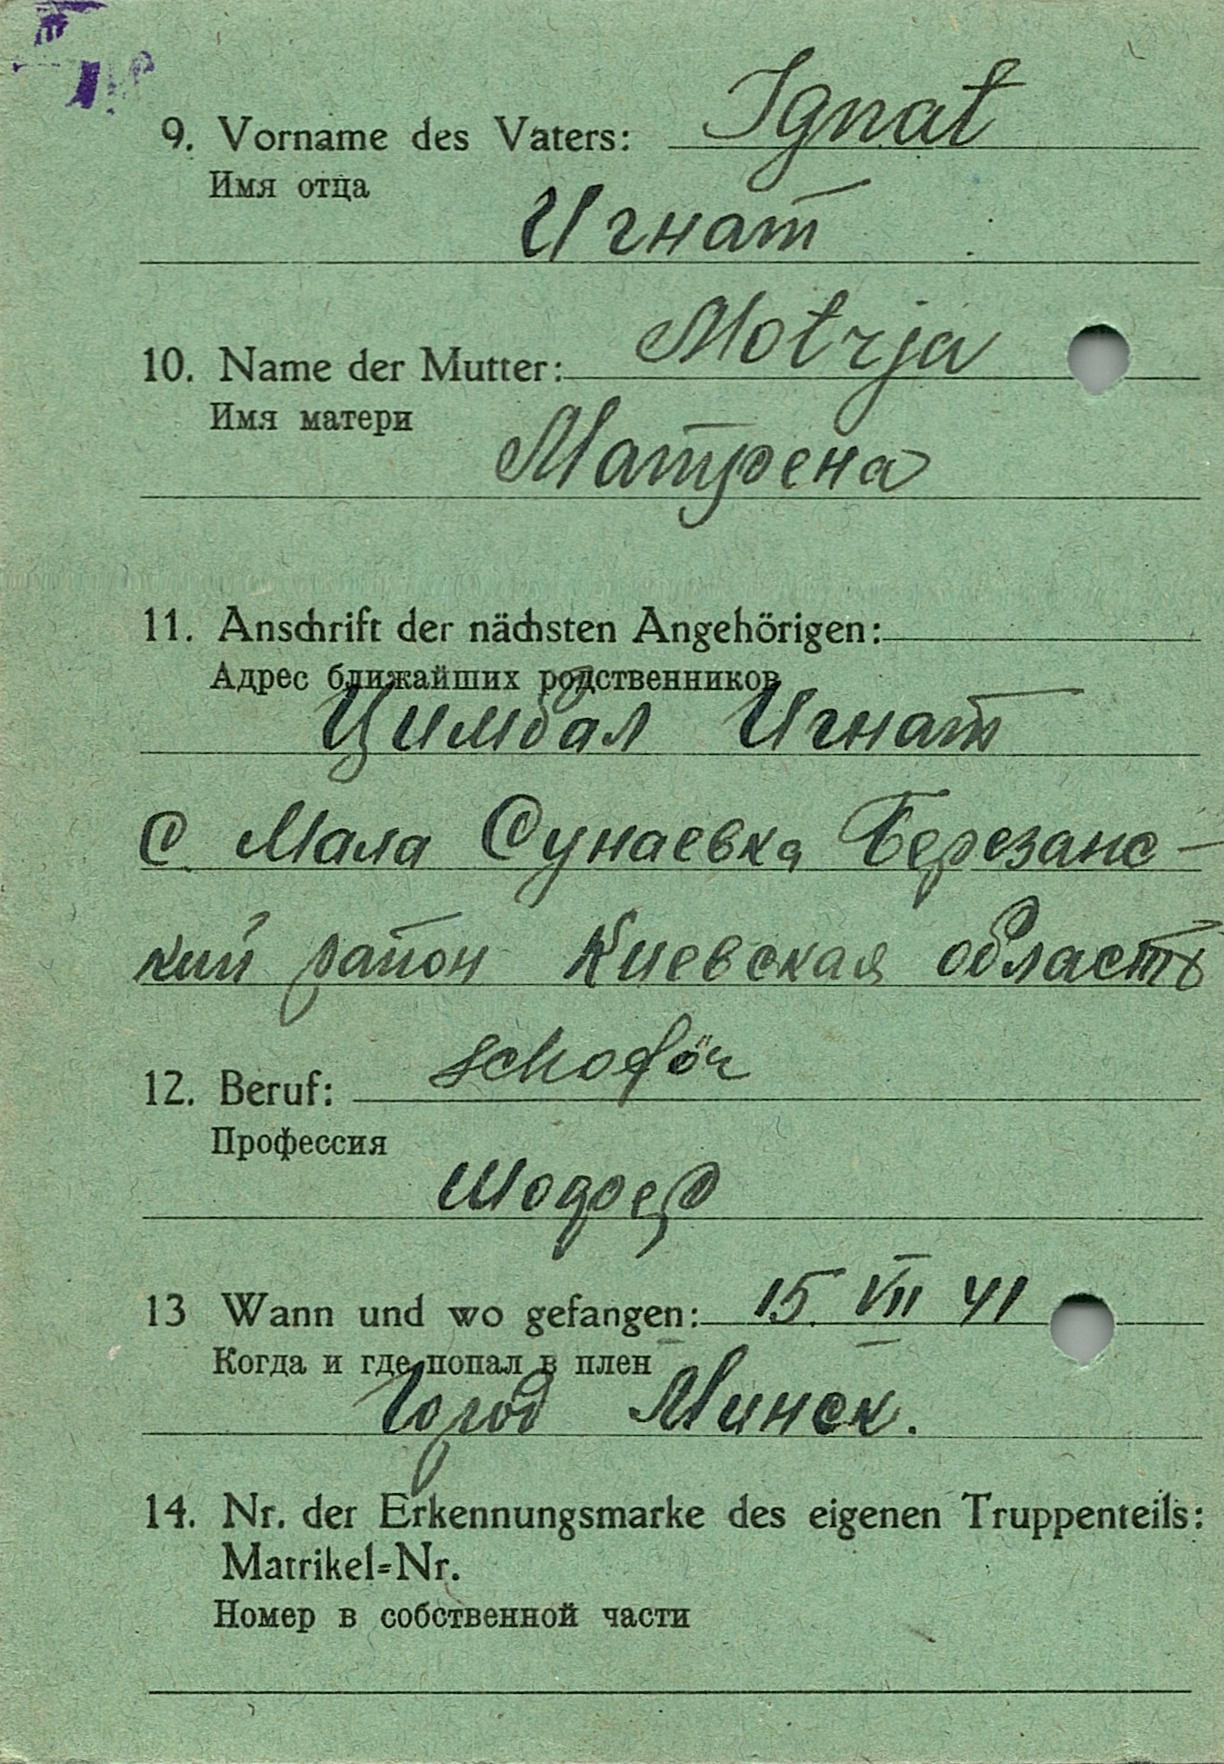 9. Vorname des Vaters: Ignat
Имя отца
Игнат
10. Name der Mutter: Motrja
Имя матери
Матрена
11. Anschrift der nächsten Angehörigen:
Адрес ближайших родственников
Цимбал Игнат
с. Мала Сунаевка Березанс-
кий район Киевская область
12. Beruf: schoför
Профессия
Шофер
13 Wann und wo gefangen: 15. VII 41
Когда и где попал в плен
Город Минск.
14. Nr. der Erkennungsmarke des eigenen Truppenteils:
Matrikel=Nr.
Номер в собственной части